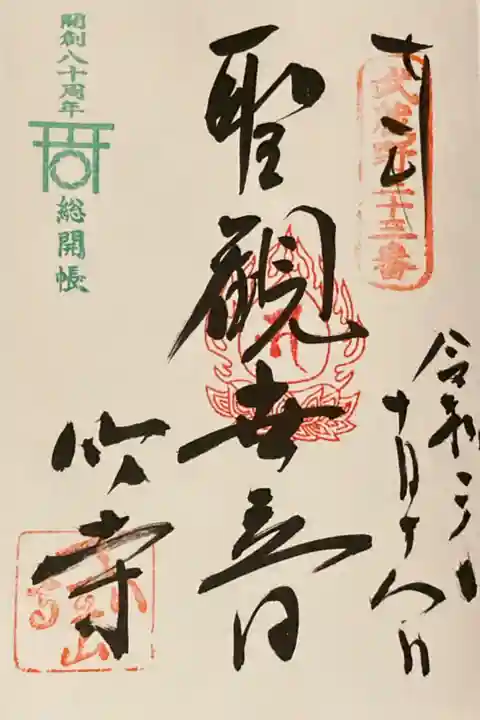 奉拝
武蔵野三十三番
令和二年
十月十八日
聖觀世音
竹寺
開創八十周年
総開帳